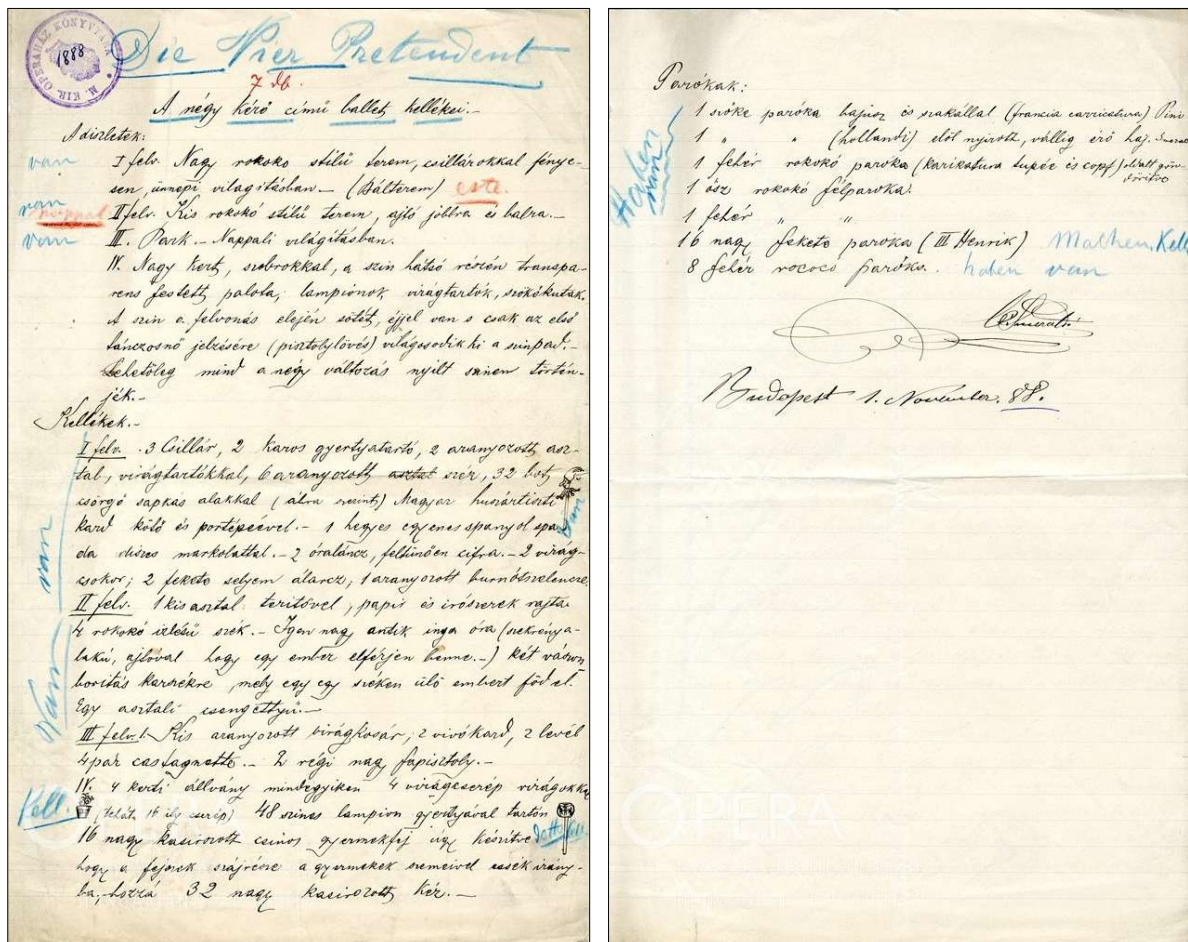 M. KIR. OPERAHÁZ KÖNYVTÁRA
1888
Die Vier Pretendent
7 db.
A négy kérő című ballet kellékei.-
A diszletek:
van I felv. Nagy rokoko stilű terem, csillárokkal fénye-
sen, ünnepi világitásban.- (Bálterem) este.
van nappal II felv. Kis rokokó stilű terem, ajtó jobbra és balra.-
van III. Park.- Nappali világitásban.
IV. Nagy Kert, szobrokkal, a szin hátsó részén transpa-
rens festett palota, lampionok, virágtartók, szökőkutak.
A szin a felvonás elején sötét, éjjel van s csak az első
tánczosnő jelzésére (pisztolylövés) világosodik ki a szinpad.-
Lehetőleg mind a négy változás nyilt szinen történ-
jék.-
Kellékek.-
I felv. 3 Csillár, 2 Karos gyertyatartó, 2 aranyozott asz-
tal, virágtartókkal, 6 aranyozott asztat szék, 32 bot,
csörgő sapkás alakkal (ábra szerint) Magyar huszártiszti
kard kötő és portépéevel.- 1 hegyes egyenes spanyol spa-
da diszes markolattal.- 2 óraláncz, feltünően cifra.- 2 virág-
csokor; 2 fekete selyem álarcz, 1 aranyozott burnótszelencze
van
van
II felv. 1 kis asztal teritővel, papir és irószerek rajta
4 rokokó izlésű szék.- Igen nagy antik inga óra (szekrénya-
laku, ajtóval hogy egy ember elférjen benne.-) két vászon
boritás karszékre, mely egy egy széken ülő embert föd el.
Egy asztali csengettyü.-
Van
III felv. 1. Kis aranyozott virágkosár, 2 vivókard, 2 levél
4 pár castagnette.- 2 régi nagy fapisztoly.-
IV. 4 kerti állvány mindegyiken 4 virágcserép virágokka
Kell. (tehát 16 ily cserép) 48 szines lampion gyertyával tartón
16 nagy kasirozott csinos gyermekfej úgy készitve
hogy a fejnek szájrésze a gyermekek szemeivel essék irány-
ba, hozzá 32 nagy kasirozott kéz.-
OPERA
Parókák:
1 szőke paróka bajusz és szakállal (francia carricatura) Pini
1 " " (hollandi) elől nyirott, vállig érő haj.
1 fehér rokokó paróka (karikatura tupée és copf) oldalt gön-
döritve
1 ősz rokokó félparóka.
1 fehér " "
16 nagy fekete paróka (III Henrik) Machen, Kell
8 fehér rococó paróka. haben van
Haben
van
Budapest 1. November. 88.
OPERA